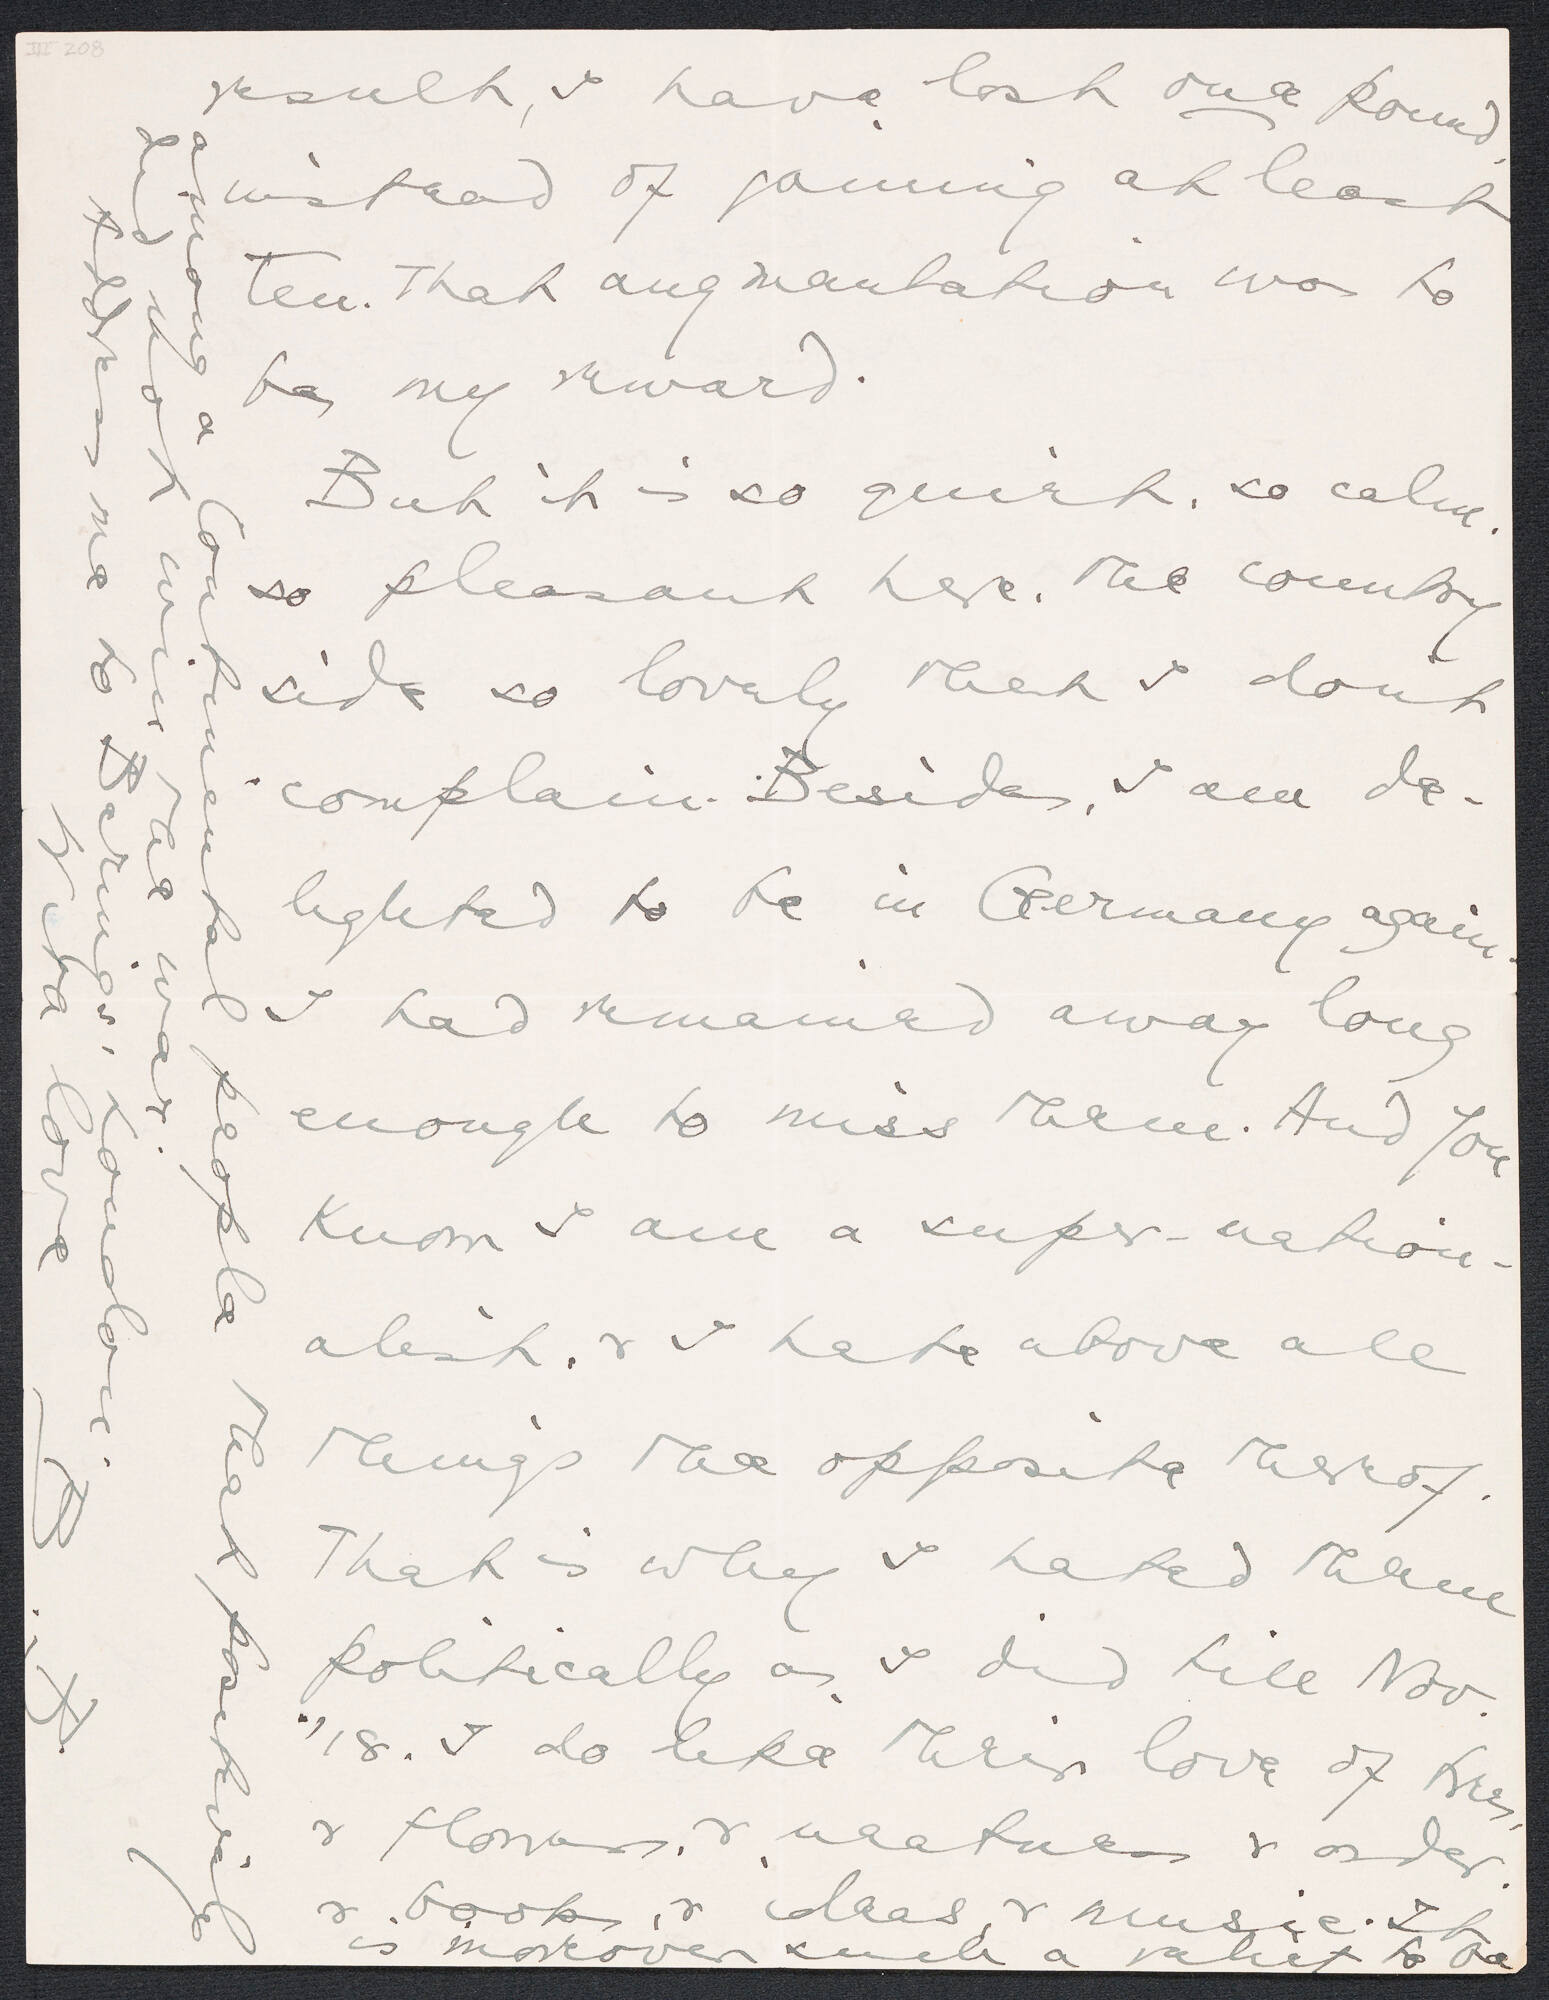 III 208
result, I have lost one pound,
instead of gaining at least
ten. That augmentation was to
be my reward.
But it is so quiet, so calm,
so pleasant here, the country
side so lovely that I don't
complain. Besides, I am de-
lighted to be in Germany again.
I had remained away long
enough to miss them. And you
know I am a super-nation-
alist, & I hate above all
things the opposite thereof.
That is why I hated them
politically as I did till Nov.
'18. I do like their love of trees,
& flowers, & neatness & order,
& books, & ideas, & music. It
is moreover such a relief to be
among a Continental people that positively
did not win the war.
Address me to Barings, London.
With love
B. B.